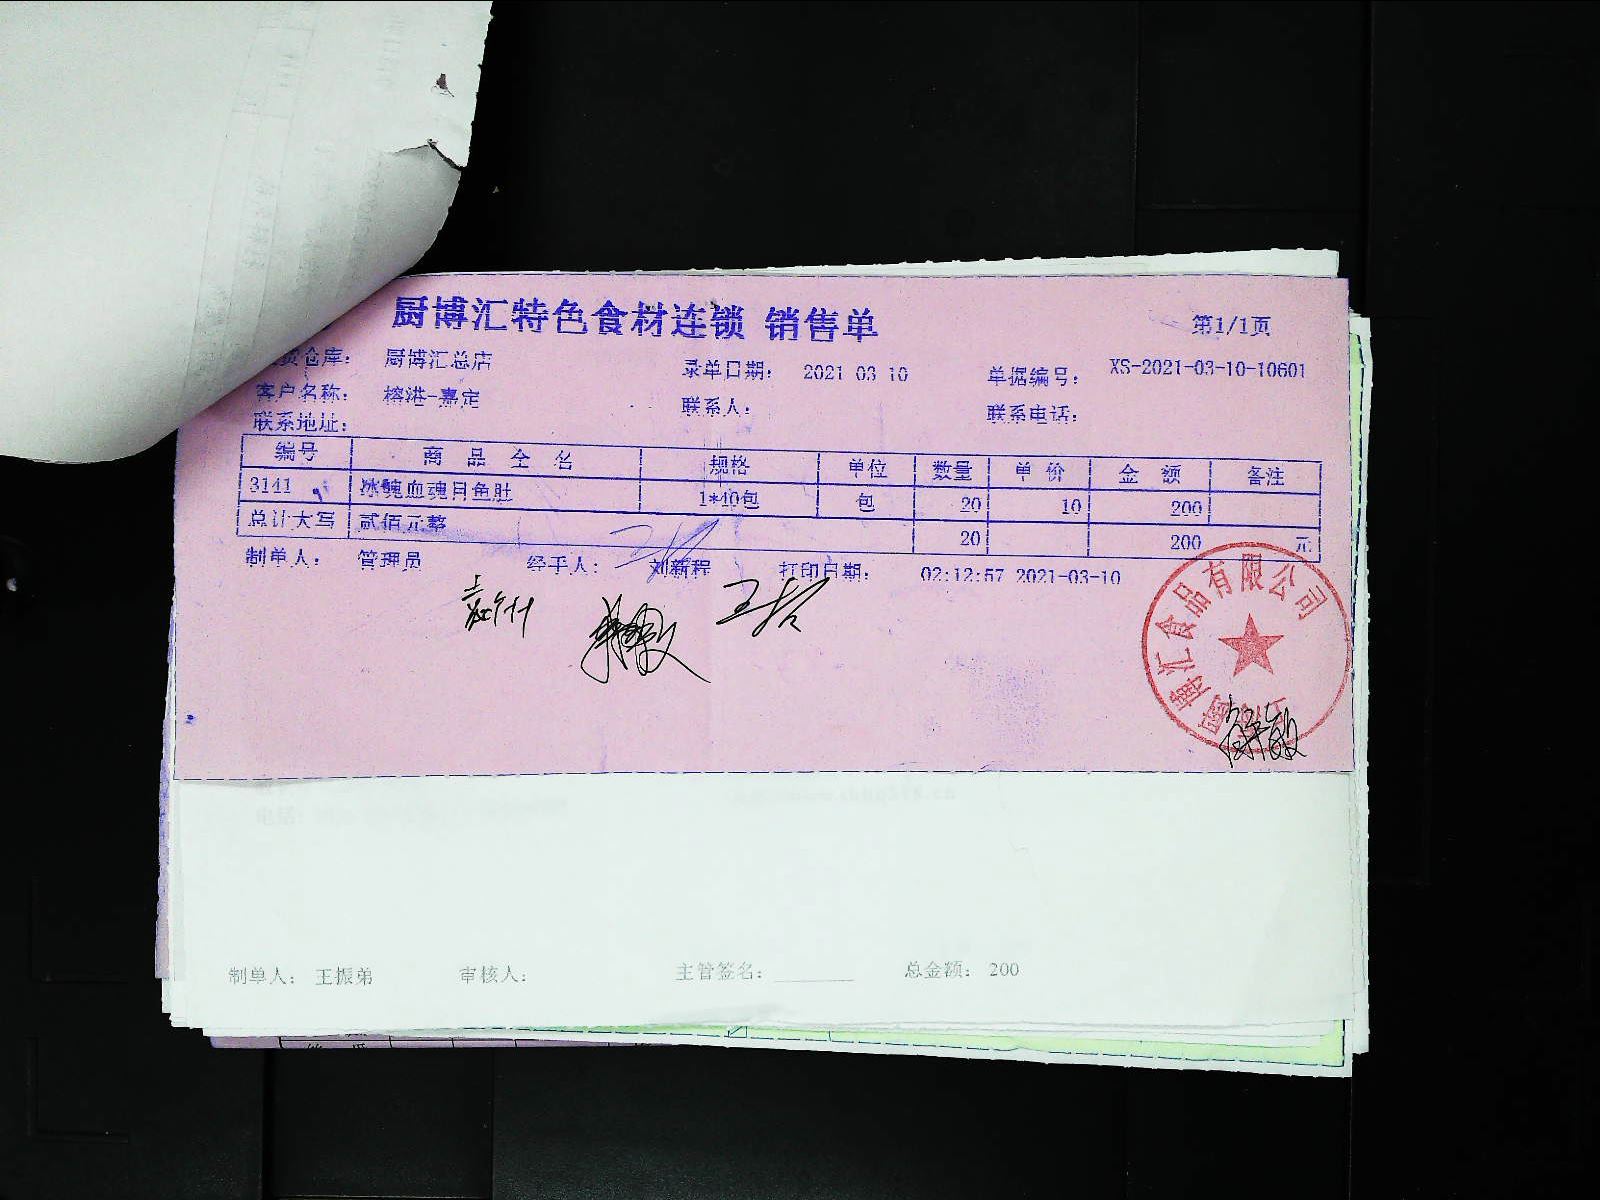 厨博汇特色食材连锁 销售单
第1/1页
货仓库： 厨博汇总店 录单日期： 2021 03 10 单据编号： XS-2021-03-10-10601
客户名称： 榕港-嘉定 联系人： 联系电话：
联系地址：
编号 商 品 全 名 规格 单位 数量 单 价 金 额 备注
3141 冰魄血魂月鱼肚 1*40包 包 20 10 200
总计大写 贰佰元整 20 200 元
制单人： 管理员 经手人： 刘新程 打印日期： 02:12:57 2021-03-10
厨博汇食品有限公司
制单人： 王振弟 审核人： 主管签名： 总金额： 200